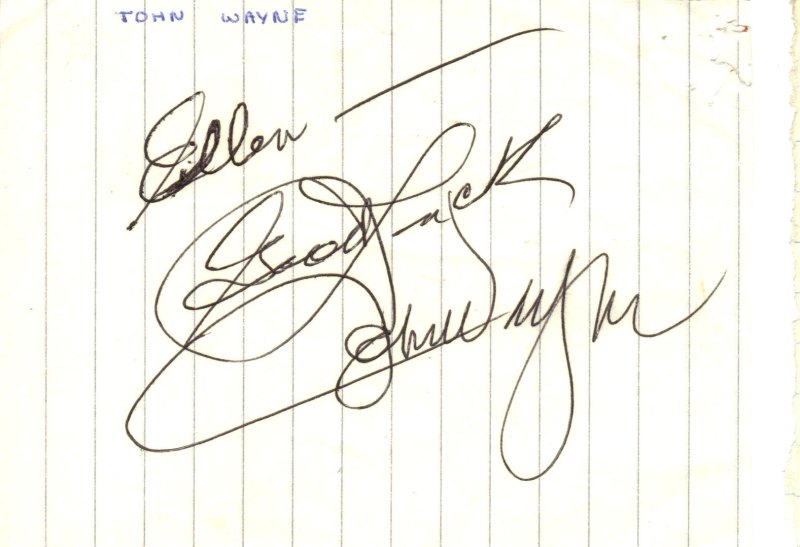 JOHN WAYNE
Ellen —
Good Luck
John Wayne